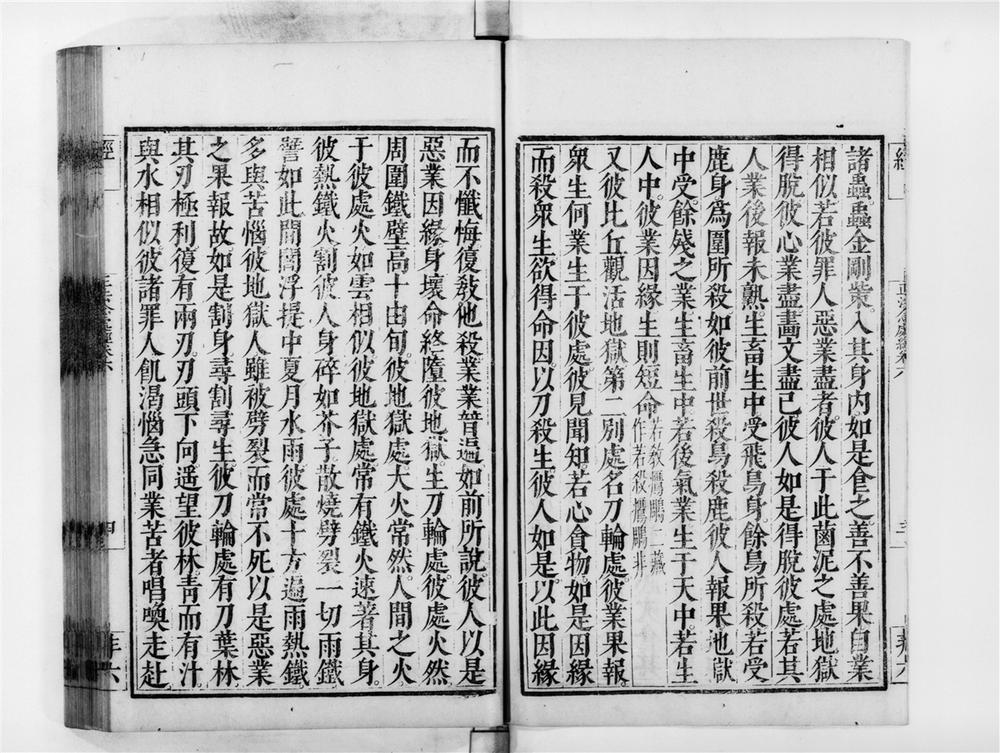 諸蟲蟲金剛觜入其身內如是食之善不善果自業
相似若彼罪人惡業盡者彼人于此菌泥之處地獄
得脫彼心業盡畵文盡已彼人如是得脫彼處若其
人業後報未熟生畜生中受飛鳥身餘鳥所殺若受
鹿身爲圍所殺如彼前世殺鳥殺鹿彼人報果地獄
中受餘殘之業生畜生中若後氣業生于天中若生
人中彼業因緣生則短命
又彼比丘觀活地獄第二別處名刀輪處彼業果報
衆生何業生于彼處彼見聞知若心食物如是因緣
而殺衆生欲得命因以刀殺生彼人如是以此因緣
而不懺悔復敎他殺業業普遍如前所說彼人以是
惡業因緣身壞命終墮彼地獄生刀輪處彼處火然
周圍鐵壁高十由旬彼地獄處大火常然人間之火
于彼處火如雲相似彼地獄處常有鐵火速著其身
彼熱鐵火割彼人身碎如芥子散燒劈裂一切雨鐵
譬如此間閻浮提中夏月水雨彼處十方遍雨熱鐵
多與苦惱彼地獄人雖被劈裂而常不死以是惡業
之果報故如是割身尋割尋生彼刀輪處有刀葉林
其刃極利復有兩刃刃頭下向遥望彼林靑而有汁
與水相似彼諸罪人飢渴惱急同業苦者唱喚走赴